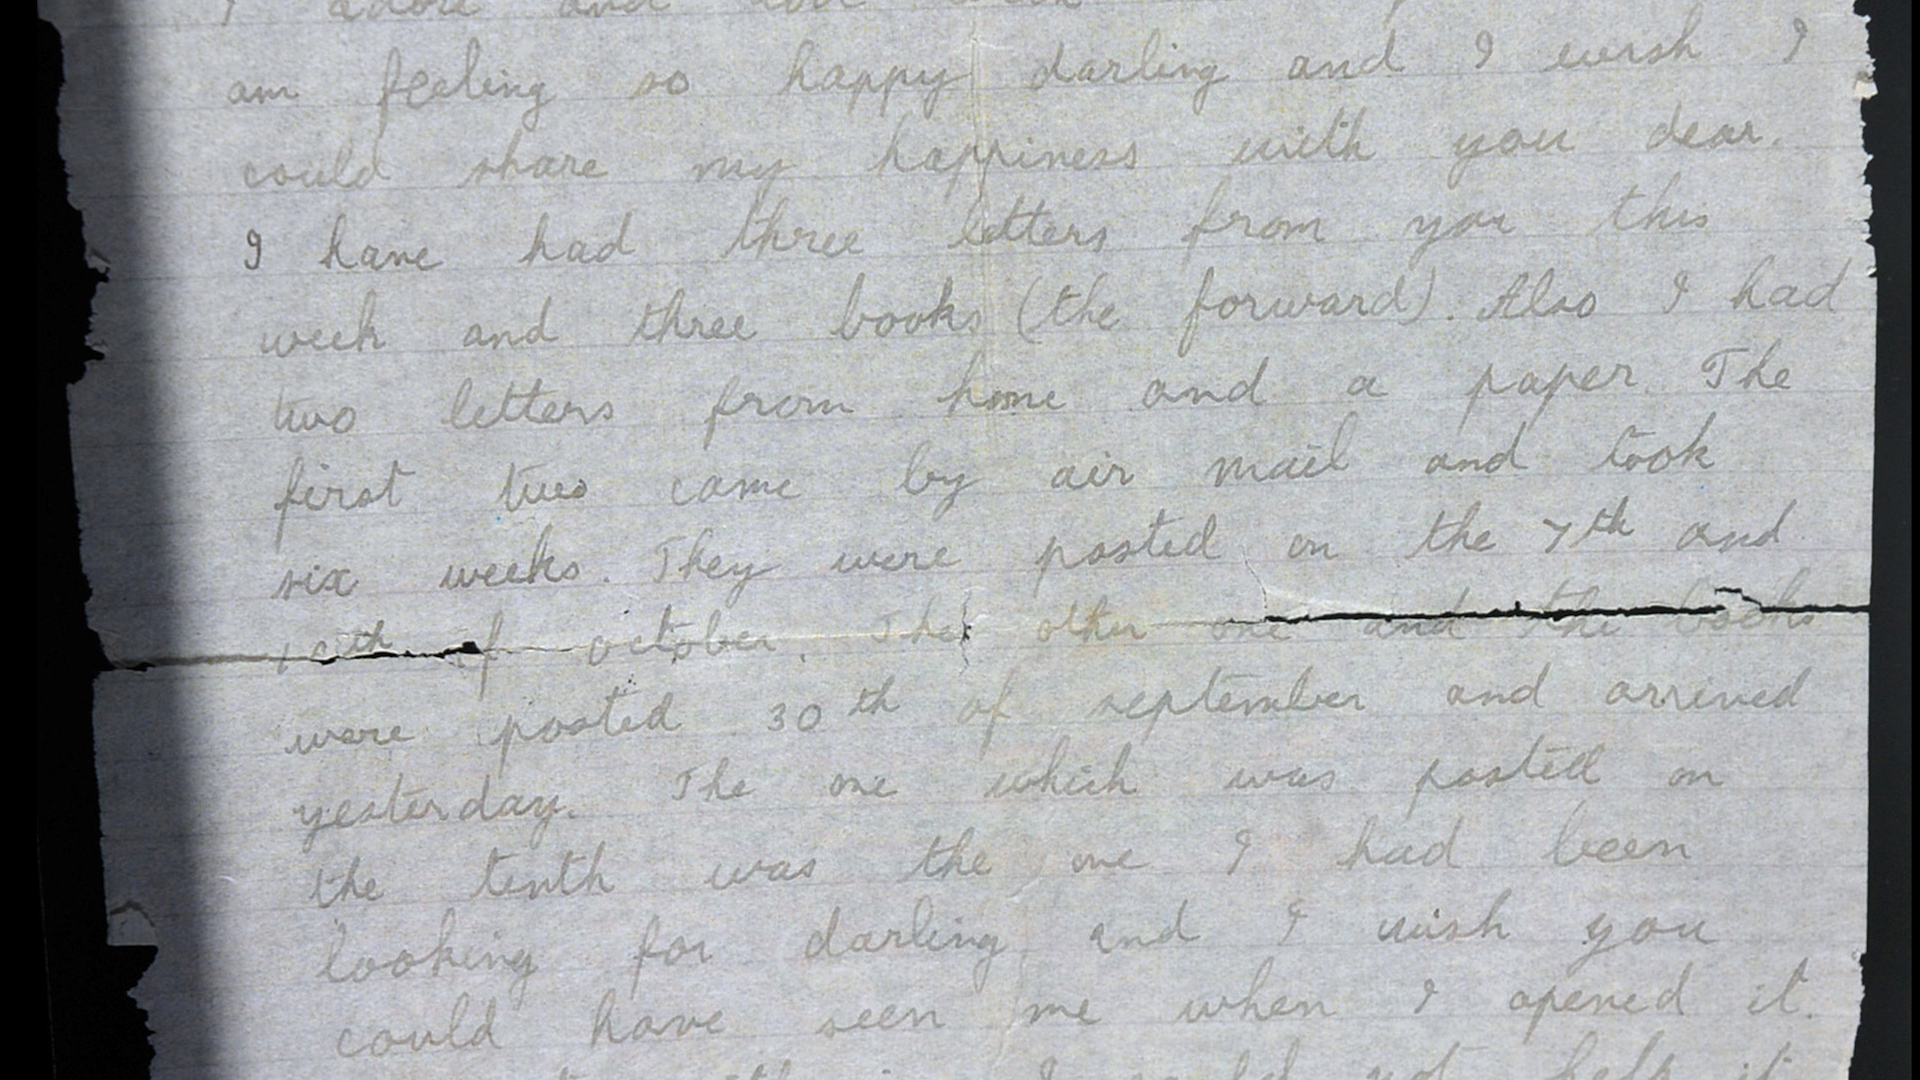 I adore and
am feeling so happy darling and I wish I
could share my happiness with you dear.
I have had three letters from you this
week and three books (the forward). Also I had
two letters from home and a paper. The
first two came by air mail and took
six weeks. They were posted on the 7th and
10th of october. The other one and the books
were posted 30th of september and arrived
yesterday. The one which was posted on
the tenth was the one I had been
looking for darling and I wish you
could have seen me when I opened it.
I could not help it